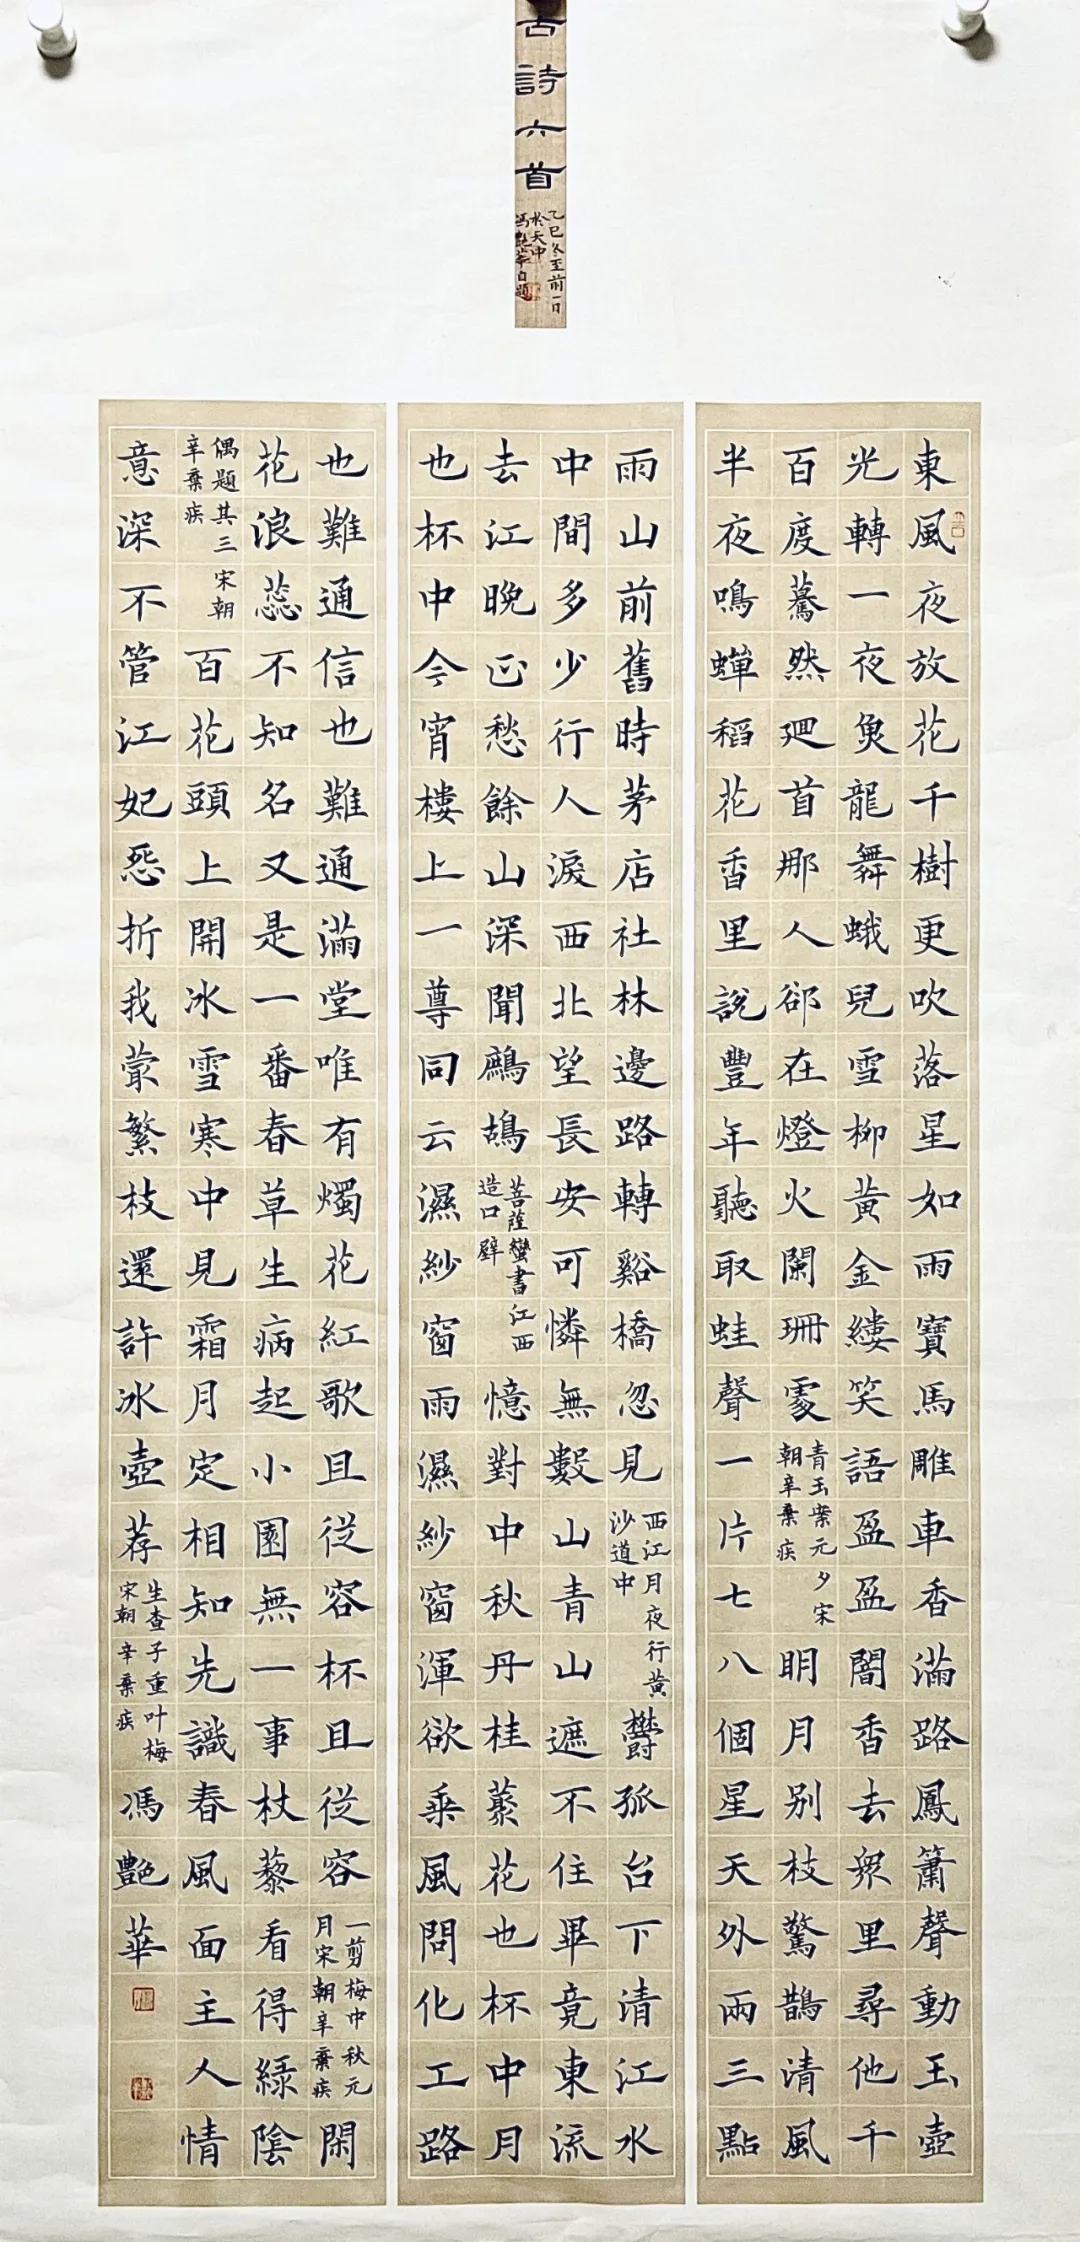 古詩六首
乙巳冬至前一日
於天中
馮艷華自題
東風夜放花千樹更吹落星如雨寶馬雕車香滿路鳳簫聲動玉壺
光轉一夜魚龍舞蛾兒雪柳黃金縷笑語盈盈闇香去眾里尋他千
百度驀然廻首那人卻在燈火闌珊處
青玉案元夕宋
朝辛棄疾
明月別枝驚鵲清風
半夜鳴蟬稻花香里說豐年聽取蛙聲一片七八個星天外兩三點
雨山前舊時茅店社林邊路轉谿橋忽見
西江月夜行黃
沙道中
鬱孤台下清江水
中間多少行人淚西北望長安可憐無數山青山遮不住畢竟東流
去江晚正愁餘山深聞鷓鴣
菩薩蠻書江西
造口壁
憶對中秋丹桂藂花也杯中月
也杯中今宵樓上一尊同云濕紗窗雨濕紗窗渾欲乘風問化工路
也難通信也難通滿堂唯有燭花紅歌且從容杯且從容
一剪梅中秋元
月宋朝辛棄疾
閑
花浪蕊不知名又是一番春草生病起小園無一事杖藜看得綠陰
偶題其三宋朝
辛棄疾
百花頭上開冰雪寒中見霜月定相知先識春風面主人情
意深不管江妃怨折我最繁枝還許冰壺荐
生查子重叶梅
宋朝辛棄疾
馮艷華